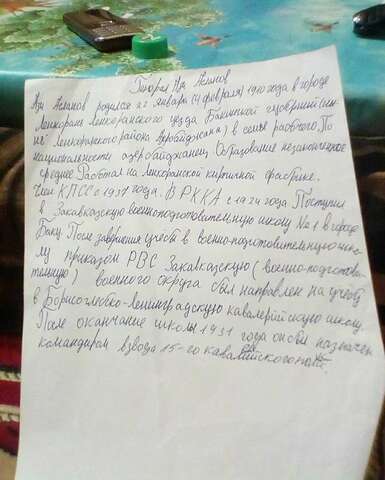 Генерал Ази Асланов
Ази Асланов родился 22 января (4 февраля) 1910 года в городе
Ленкоране Ленкоранского уезда Бакинской губернии (ны-
не Ленкоранского района Азербайджана) в семье рабочего. По
национальности азербайджанец. Образование незаконченное
среднее Работал на Ленкоранской кирпичной фабрике.
Член КПСС с 1937 года. В РККА с 1924 года Поступил
в Закавказскую военноподготовительную школу №1 в городе
Баку После завершия учёбы в военно-подготовительную шко-
му приказом РВС Закавказскую (военно-подготови-
тельную) военного округа был направлен на учёбу
в Борисоглебско-Ленинградскую кавалерийскую школу.
После окончание школы 1931 года он был назначен
командиром взвода 15-го кавалерийского